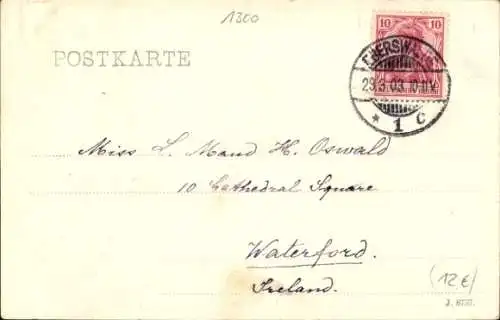 1300
POSTKARTE
10 10
EBERSWALDE
29.3.03.10-11V.
* 1 c
Miss L. Maud H. Oswald
10 Cathedral Square
Waterford.
Ireland.
(12€)
J. 8757.